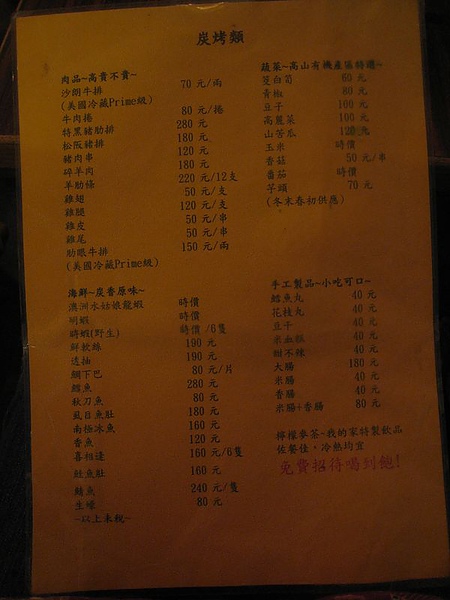 炭烤類
肉品~高貴不貴~
沙朗牛排 70 元/兩
(美國冷藏Prime級)
牛肉捲 80 元/捲
特黑豬肋排 280 元
松阪豬排 180 元
豬肉串 120 元
碎羊肉 180 元
羊肋條 220 元/12支
雞翅 50 元/支
雞腿 120 元/支
雞皮 50 元/串
雞尾 50 元/串
肋眼牛排 150 元/兩
(美國冷藏Prime級)
海鮮~炭香原味~
澳洲水姑娘龍蝦 時價
明蝦 時價
蝦(野生) 時價 /6隻
鮮軟絲 190 元
透抽 190 元
鯛下巴 80 元/片
鱈魚 280 元
秋刀魚 80 元
虱目魚肚 180 元
南極冰魚 160 元
香魚 120 元
喜相逢 160 元/6隻
魚肚 160 元
鯖魚 240 元/隻
生蠔 80 元
~以上未稅~
蔬菜~高山有機產區特選~
茭白筍 60 元
青椒 80 元
豆子 100 元
高麗菜 100 元
山苦瓜 120元
玉米 時價
香菇 50 元/串
番茄 時價
芋頭 70 元
(冬末春初供應)
手工製品~小吃可口~
鱈魚丸 40 元
花枝丸 40 元
豆干 40 元
米血糕 40 元
甜不辣 40 元
大腸 180 元
米腸 40 元
香腸 40 元
米腸+香腸 80 元
檸檬麥茶-我的家特製飲品
佐餐佳,冷熱均宜
免費招待喝到飽!